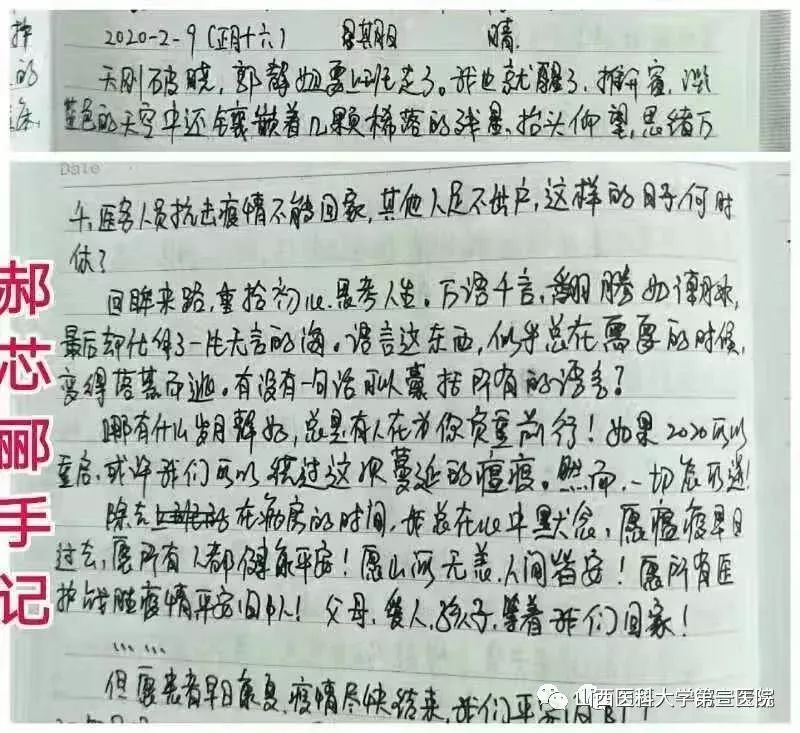 2020-2-9(正月十六) 星期日 晴.
天刚破晓,郭静姐要上班走了。我也就醒了,推开窗,深
蓝色的天空中还镶嵌着几颗稀落的残星,抬头仰望,思绪万
Date
千,医务人员抗击疫情不能回家,其他人足不出户,这样的日子何时
休?
回眸来路,重拾初心.思考人生。万语千言,翻腾如潮水,
最后却化作了一片无言的海。语言这东西,似乎总在需要的时候,
变得落慕而逃。有没有一句话可以囊括所有的语言?
哪有什么岁月静好,总是有人在为你负重前行!如果2020可以
重启,或许我们可以绕过这次蔓延的瘟疫。然而,一切
除去 在病房的时间,我总在心中默念,愿瘟疫早日
过去,愿所有人都健康平安!愿山河无恙,人间皆安!愿所有医
护战胜疫情平安归来!父母,爱人,孩子,等着我们回家!
… …
但愿患者早日康复,疫情尽快结束,我们平安归
郝芯郦手记
山西医科大学第一医院